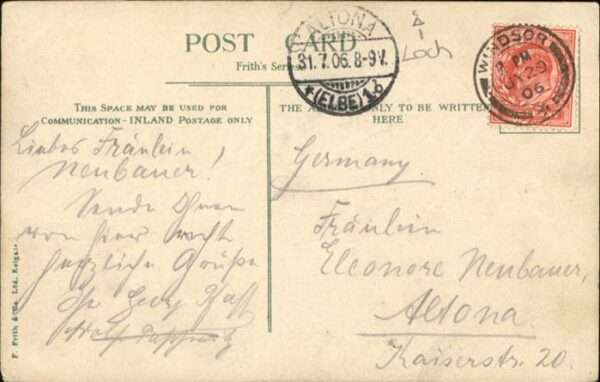 POST CARD
Frith's Series
THIS SPACE MAY BE USED FOR
COMMUNICATION - INLAND POSTAGE ONLY
THE ADDRESS ONLY TO BE WRITTEN
HERE
ALTONA
31.7.06.8-9V.
*(ELBE)1b
Loch
WINDSOR
PM
JY 29
06
Liebes Fräulein
Neubauer!
Sende Ihnen
von hier recht
herzliche Grüße
Germany.
Fräulein
Eleonore Neubauer,
Altona
Kaiserstr. 20.
F. Frith & Co. Ltd. Reigate.